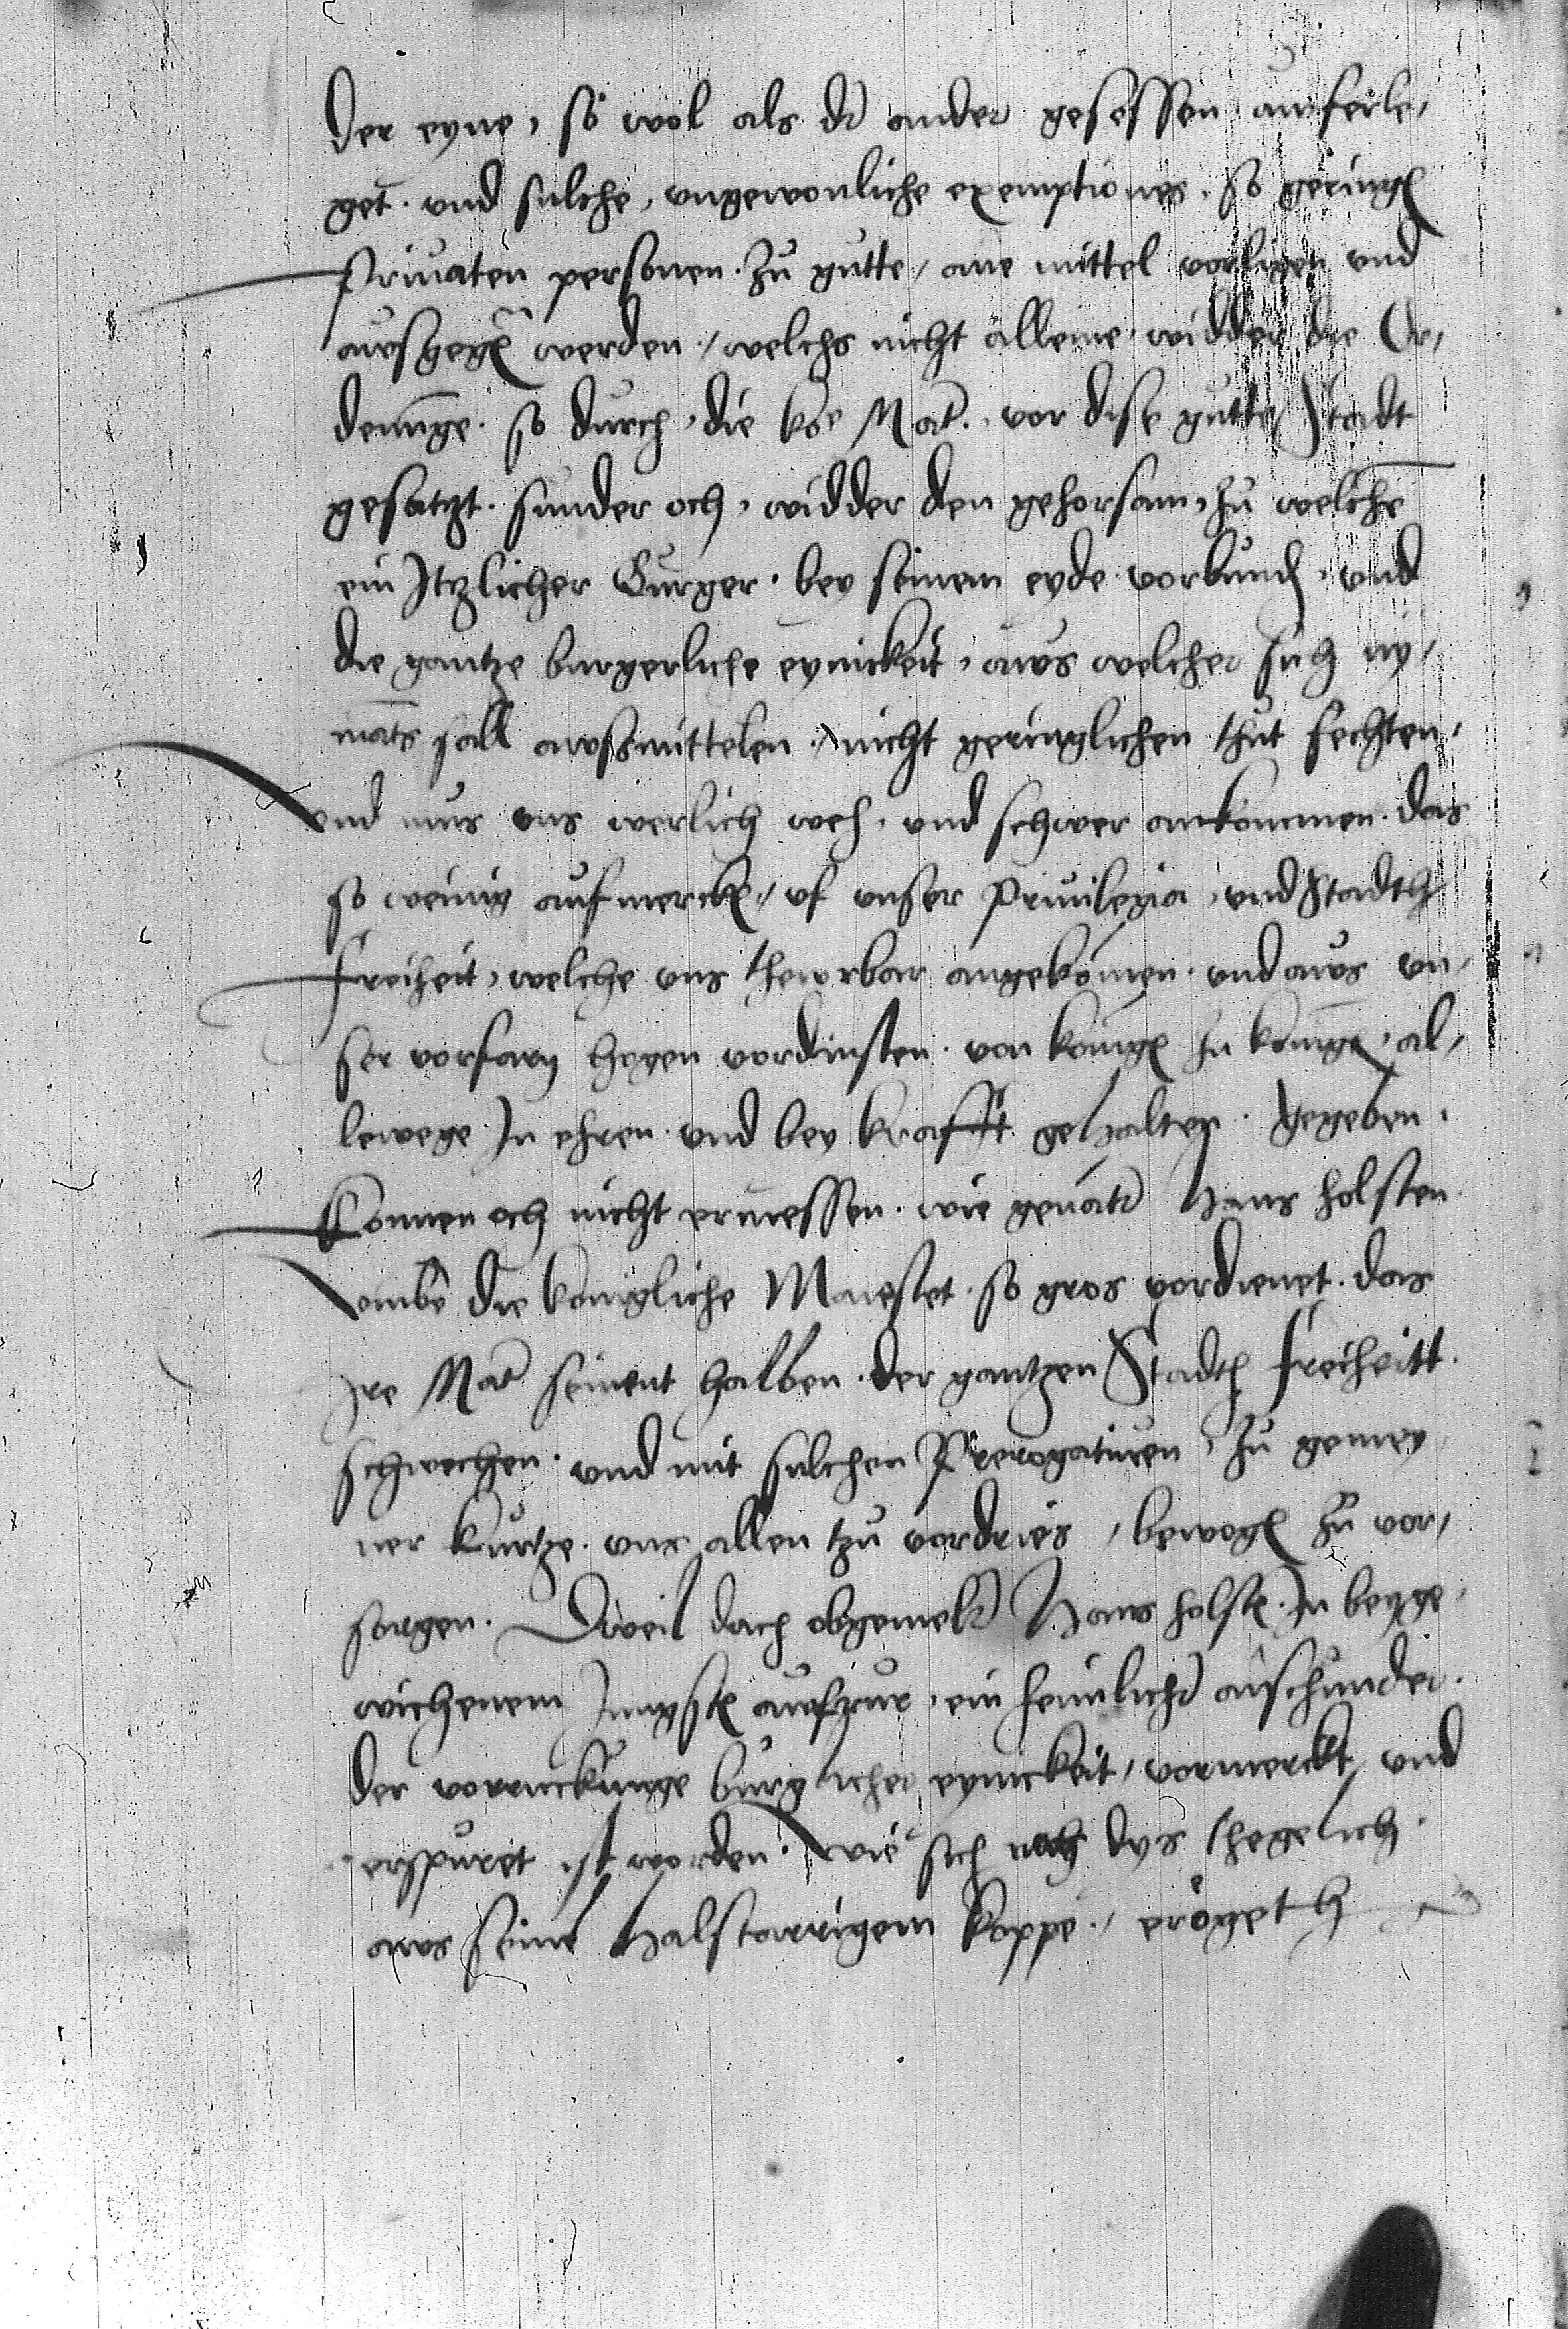 der eyne, so wol als d' ander gesessen aufferle,
get. vnd sulche, vngewonliche exemptiones. so gering
priuaten personen. zu gutte, ane mittel vorligen vnd
awsgegē werden., welchs nicht alleine, widder die Or,
denunge. so durch, die koe Mat., vor dise gutte Stadt
gesatzt. sunder och, widder den gehorsam, zu welchē
ein Itzlicher Burger. bey seinem eyde vorbund, vnd
die gantze burgerliche eynickeit, aws welcher sich ny,
mats sall awsmittelen., nicht geringlichen thut fechten,
vnd mus vns werlich weh, vnd schwer ankommen. das
so wenig aufmerckē, vf vnser Priuilegia, vnd Stadth
freiheit, welche vns thewrbar angekomen. vnd aws vn,
ser vorfarn hogen vordinsten. von konige zu konige, al,
lewege In ehren. vnd bey krafft gehalten. gegeben.
Konnen och nicht ermessen. wie genāt' Hans holsten
vmbe die konigliche Maiestet. so gros vordienet. das
Ire Mat' seinent halben. der gantzen Stadth freiheitt
schwechen. vnd mit sulchen Prerogatiuen, zu gemey
ner kurtze. vns allen tzu vordries, bewogē zu vor,
sorgen. Dweil doch obgemelt' Hans holstē. In beyge,
wichenem Jungstē auffrur, ein heimlich' anschunder.
der vorruckunge burglicher eynickeit, vormerckt vnd
erspuret ist worden. wie sich noch dys thegelich.
aws seinē halstarrigem koppe., eröget h